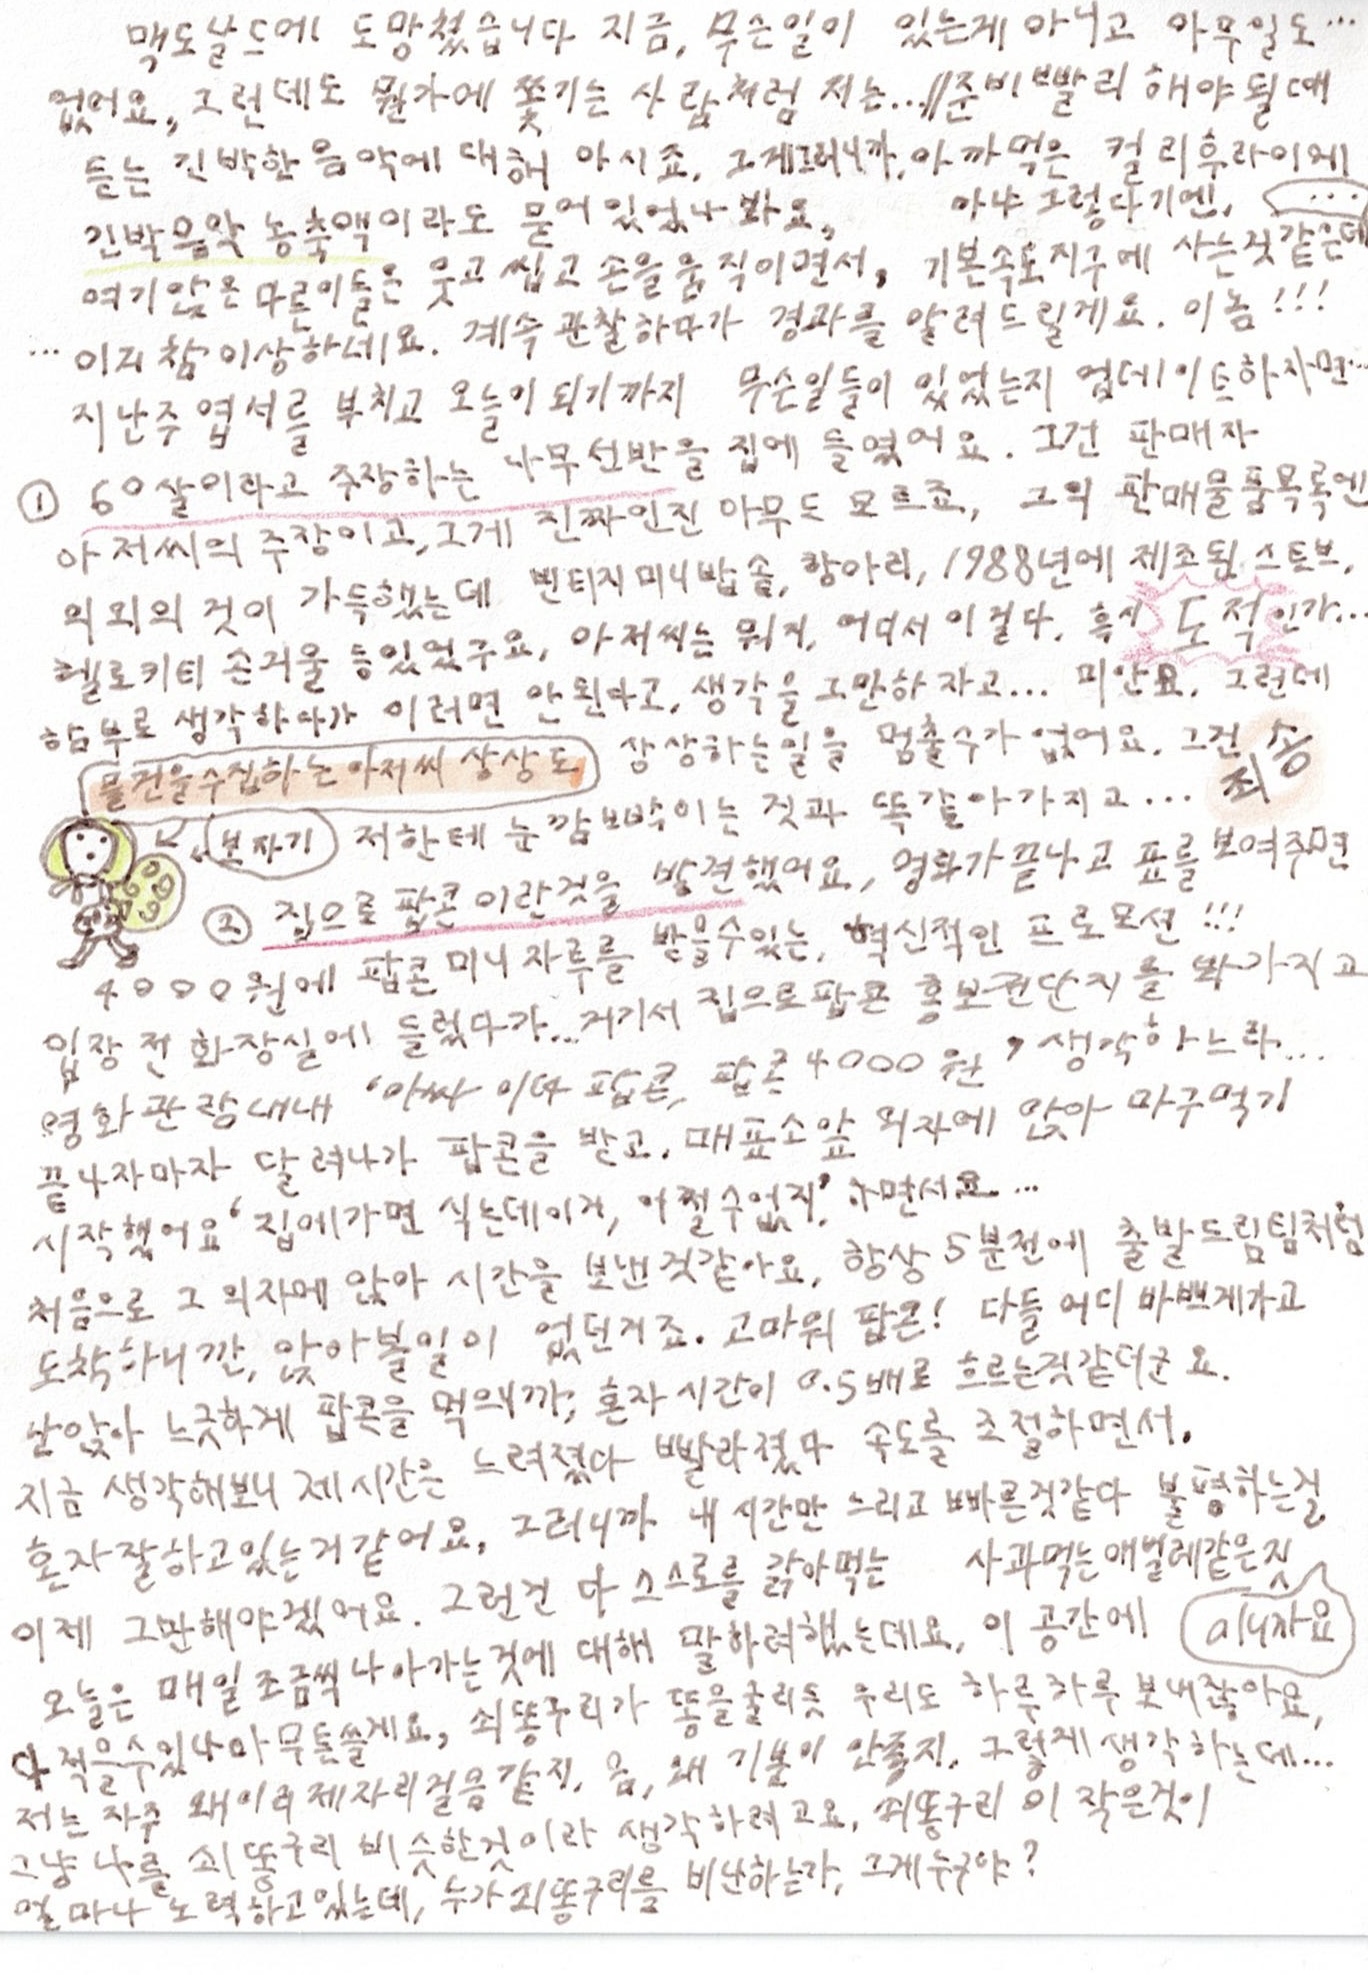 맥도날드에 도망쳤습니다 지금, 무슨일이 있는게 아니고 아무일도...
없어요, 그런데도 뭔가에 쫓기는 사람처럼 저는...//준비 빨리 해야될때
듣는 긴박한 음악에 대해 아시죠, 그게그러니까, 아까먹은 컬리후라이에
긴박음악 농축액이라도 묻어있었나봐요, 아냐 그렇다기엔, ...
여기앉은 다른이들은 웃고 씹고 손을움직이면서, 기본속도지구에 사는것같은데
... 이거참이상하네요. 계속 관찰하다가 경과를 알려드릴게요. 이놈!!!
지난주 엽서를 부치고 오늘이되기까지 무슨일들이 있었는지 업데이트하자면...
① 60살이라고 주장하는 나무선반을 집에 들였어요. 그건 판매자
아저씨의 주장이고, 그게 진짜인진 아무도 모르죠, 그의 판매물품목록엔
의외의 것이 가득했는데 빈티지미니밥솥, 항아리, 1988년에 제조된 스토브,
헬로키티 손거울 등있었구요, 아저씨는 뭐지, 어디서 이걸다, 혹시 도적인가...
함부로 생각하다가 이러면 안된다고, 생각을 그만하자고... 미안요. 그런데
물건을수집하는아저씨 상상도 상상하는일을 멈출수가 없어요. 그건 죄송
보자기 저한테 눈깜빡이는 것과 똑같아가지고...
② 집으로 팝콘이란것을 발견했어요, 영화가끝나고 표를 보여주면
4000원에 팝콘미니자루를 받을수있는, 혁신적인 프로모션!!!
입장 전 화장실에 들렀다가... 거기서 집으로팝콘 홍보전단지를 봐가지고
영화관람내내 '아싸 이따 팝콘, 팝콘 4000원' 생각하느라...
끝나자마자 달려나가 팝콘을 받고, 매표소앞 의자에 앉아 마구먹기
시작했어요 '집에가면 식는데이거, 어쩔수없지,' 하면서요...
처음으로 그 의자에 앉아 시간을 보낸것같아요, 항상 5분전에 출발드림팀처럼
도착하니깐, 앉아볼일이 없던거죠. 고마워 팝콘! 다들 어디 바쁘게가고
난앉아 느긋하게 팝콘을 먹으니까, 혼자 시간이 0.5배로 흐르는것같더군요.
지금 생각해보니 제시간은 느려졌다 빨라졌다 속도를 조절하면서,
혼자잘하고있는거같어요, 그러니까 내 시간만 느리고 빠른것같다 불평하는걸
이제 그만해야겠어요. 그런건 다 스스로를 갉아먹는 사과먹는애벌레같은짓
오늘은 매일조금씩나아가는것에 대해 말하려했는데요, 이 공간에 아니자요
다 적을수있나아무튼쓸게요, 쇠똥구리가 똥을굴리듯 우리도 하루하루 보내잖아요,
저는 자주 왜이리제자리걸음같지, 음, 왜 기분이 안좋지, 그렇게 생각하는데...
그냥 나를 쇠똥구리 비슷한것이라 생각하려고요, 쇠똥구리 이 작은것이
얼마나 노력하고있는데, 누가쇠똥구리를 비난하는가, 그게누구야?